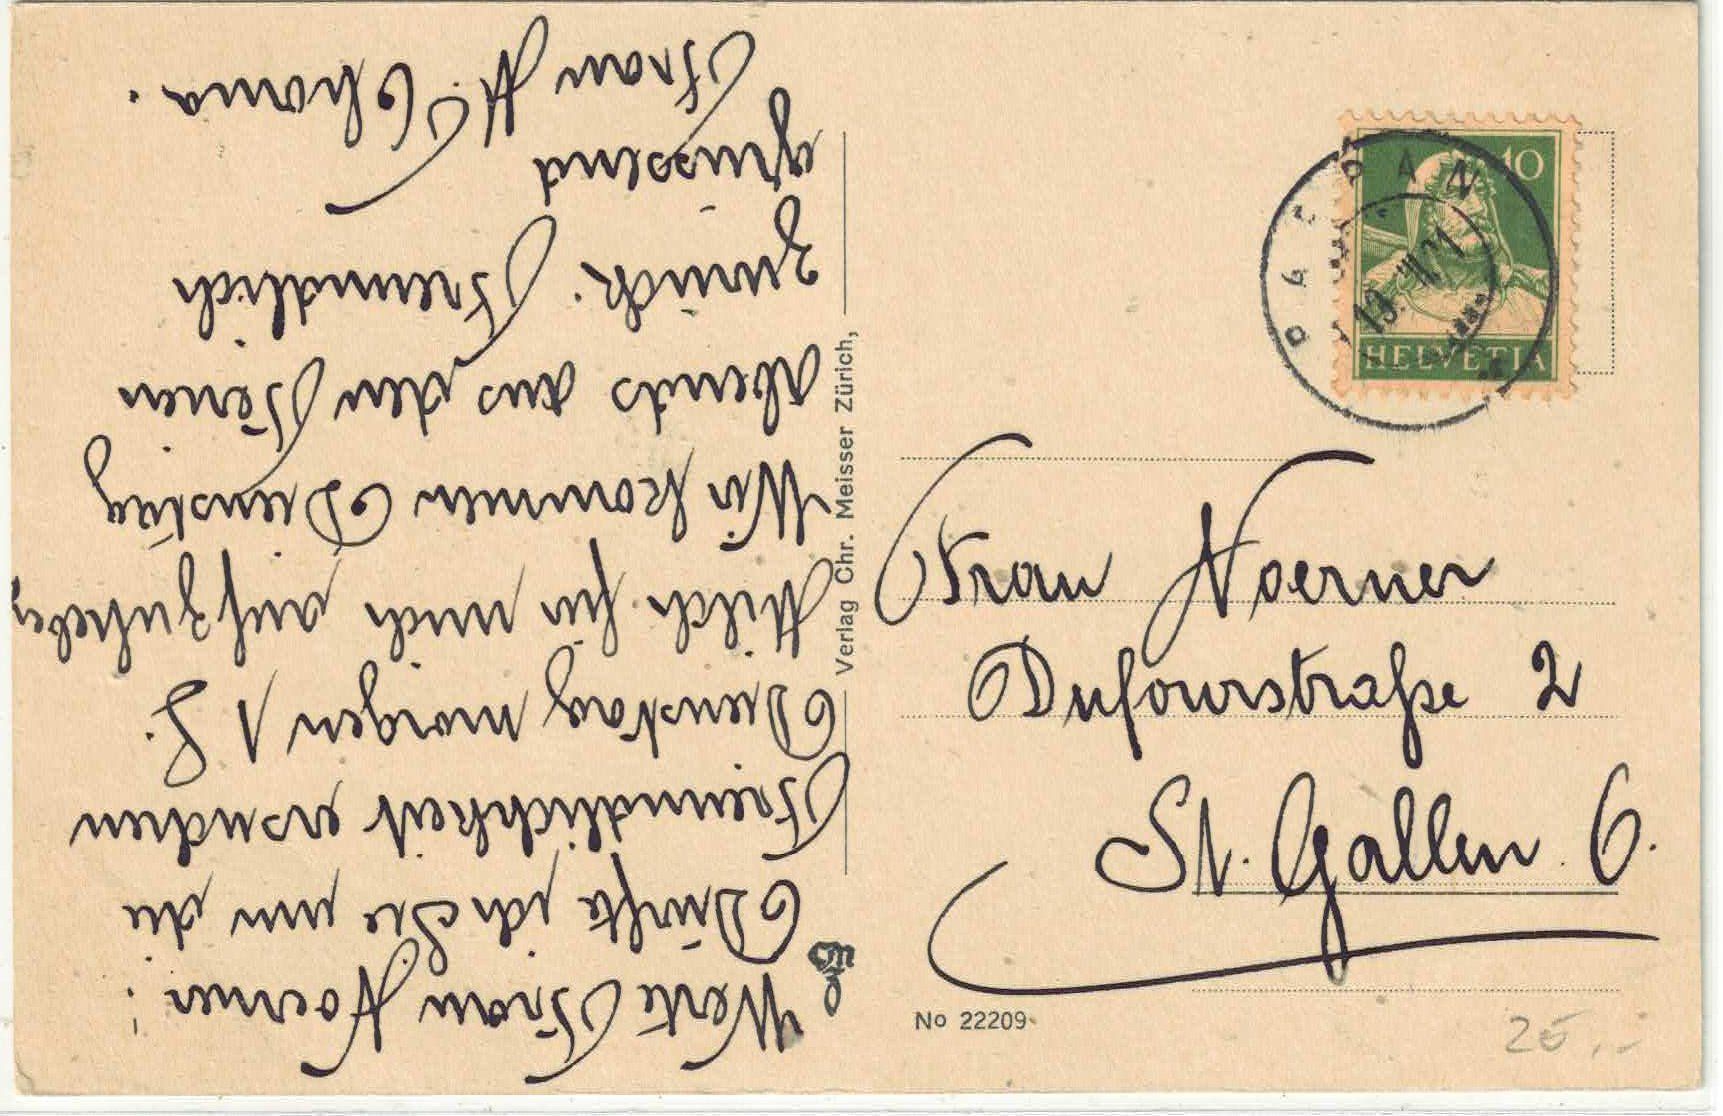 Werte Frau Noerner!
Dürfte ich Sie um die
Freundlichkeit ersuchen
Dienstag morgen 1 L.
Milch für mich aufzuheben
Wir kommen Dienstag
abends aus den Ferien
zurück. Freundlich
grüssend
Frau H. Thoma.
Verlag Chr. Meisser Zürich,
10
HELVETIA
PAN
19. VII. 21
Frau Noerner
Dufourstraße 2
St. Gallen 6.
No 22209
25.-